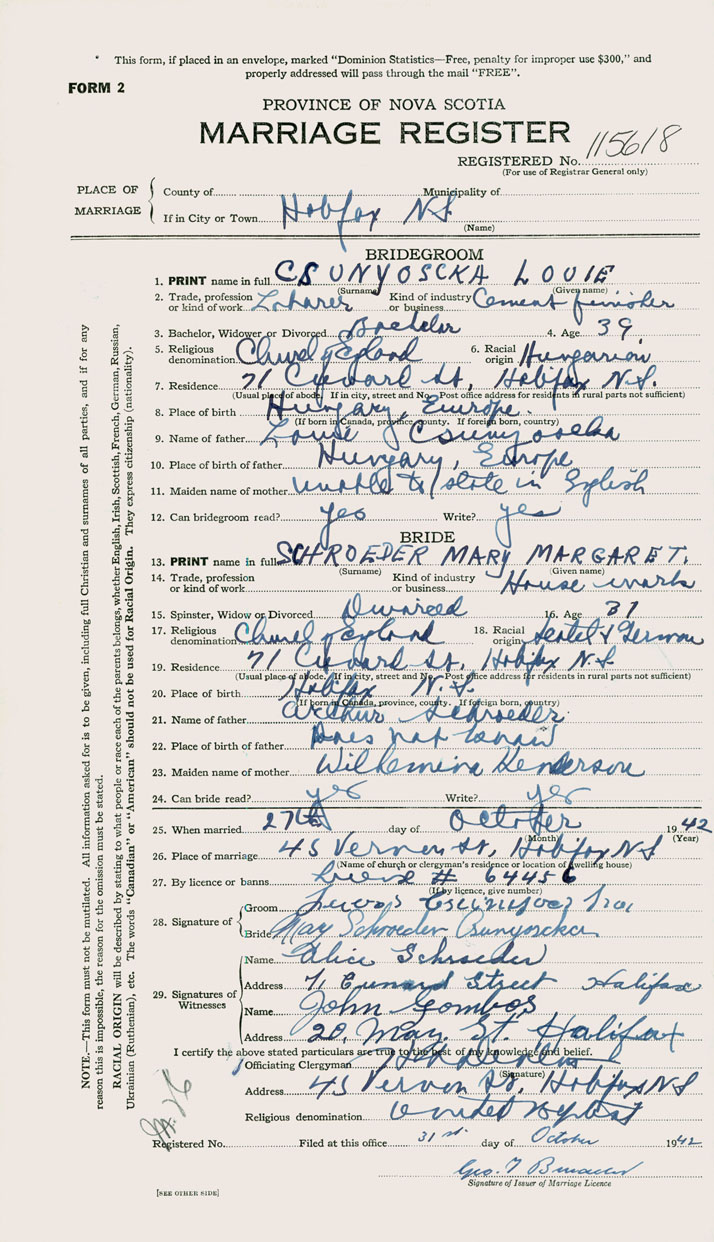 This form, if placed in an envelope, marked "Dominion Statistics—Free, penalty for improper use $300," and
properly addressed will pass through the mail "FREE".
FORM 2
PROVINCE OF NOVA SCOTIA
MARRIAGE REGISTER
REGISTERED No. 115618
(For use of Registrar General only)
PLACE OF MARRIAGE
County of Municipality of
If in City or Town Halifax N.S.
(Name)
BRIDEGROOM
1. PRINT name in full CSUNYOSCKA LOUIE
(Surname) (Given name)
2. Trade, profession or kind of work Laborer Kind of industry or business Cement finisher
3. Bachelor, Widower or Divorced Bachelor 4. Age 39
5. Religious denomination Church of England 6. Racial origin Hungarian
7. Residence 71 St, Halifax N.S.
(Usual place of abode. If in city, street and No. Post office address for residents in rural parts not sufficient)
8. Place of birth Hungary, Europe.
(If born in Canada, province, county. If foreign born, country)
9. Name of father Louie Csunyoscka
10. Place of birth of father Hungary, Europe
11. Maiden name of mother unable to state in English
12. Can bridegroom read? yes Write? yes
BRIDE
13. PRINT name in full SCHROEDER MARY MARGARET.
(Surname) (Given name)
14. Trade, profession or kind of work Kind of industry or business House work
15. Spinster, Widow or Divorced Divorced 16. Age 31
17. Religious denomination Church of England 18. Racial origin German
19. Residence 71 St, Halifax N.S
(Usual place of abode. If in city, street and No. Post office address for residents in rural parts not sufficient)
20. Place of birth Halifax N.S.
(If born in Canada, province, county. If foreign born, country)
21. Name of father Arthur Schroeder
22. Place of birth of father Does not know
23. Maiden name of mother Wilhemina Henderson
24. Can bride read? yes Write? yes
25. When married 27th day of October 1942
(Month) (Year)
26. Place of marriage 45 Vernon St, Halifax N S
(Name of church or clergyman's residence or location of dwelling house)
27. By licence or banns # 64456
(If by licence, give number)
28. Signature of
Groom
Bride May Schroeder Csunyoscka
29. Signatures of Witnesses
Name Alice Schroeder
Address 71 Street Halifax
Name John Gombos
Address 20, May. St. Halifax
I certify the above stated particulars are true to the best of my knowledge and belief.
Officiating Clergyman
(Signature)
Address 45 Vernon St, Halifax N S
Religious denomination United Baptist
Registered No. Filed at this office 31st. day of October 1942
Geo. T
Signature of Issuer of Marriage Licence
[SEE OTHER SIDE]
NOTE.—This form must not be mutilated. All information asked for is to be given, including full Christian and surnames of all parties, and if for any
reason this is impossible, the reason for the omission must be stated.
RACIAL ORIGIN will be described by stating to what people or race each of the parents belongs, whether English, Irish, Scottish, French, German, Russian,
Ukrainian (Ruthenian), etc. The words "Canadian" or "American" should not be used for Racial Origin. They express citizenship (nationality).